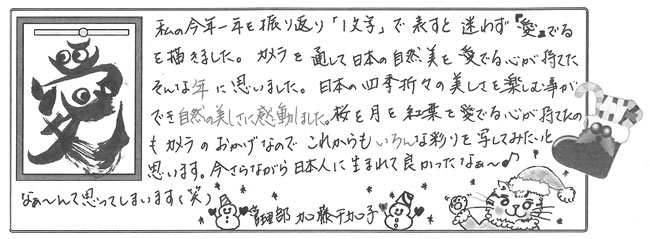 愛
私の今年一年を振り返り「1文字」で表すと迷わず『愛』でる
を描きました。カメラを通して日本の自然美を愛でる心が持てた
そんな年に思いました。日本の四季折々の美しさを楽しむ事が
でき自然の美しさに感動しました。桜を月を紅葉を愛でる心が持てたの
もカメラのおかげなのでこれからもいろんな彩りを写してみたいと
思います。今さらながら日本人に生まれて良かったなぁ〜♪
なぁ〜んて思ってしまいます(笑)
管理部 加藤千加子